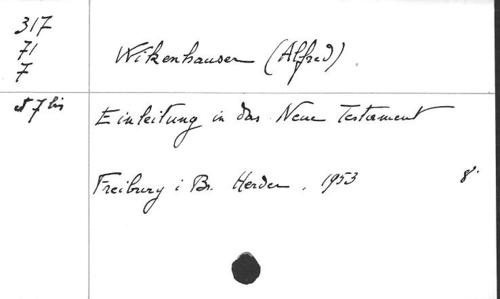 317
71
7
et 7 bis
Wikenhauser (Alfred).
Einleitung in das Neue Testament
Freiburg i Br. Herder. 1953 8°